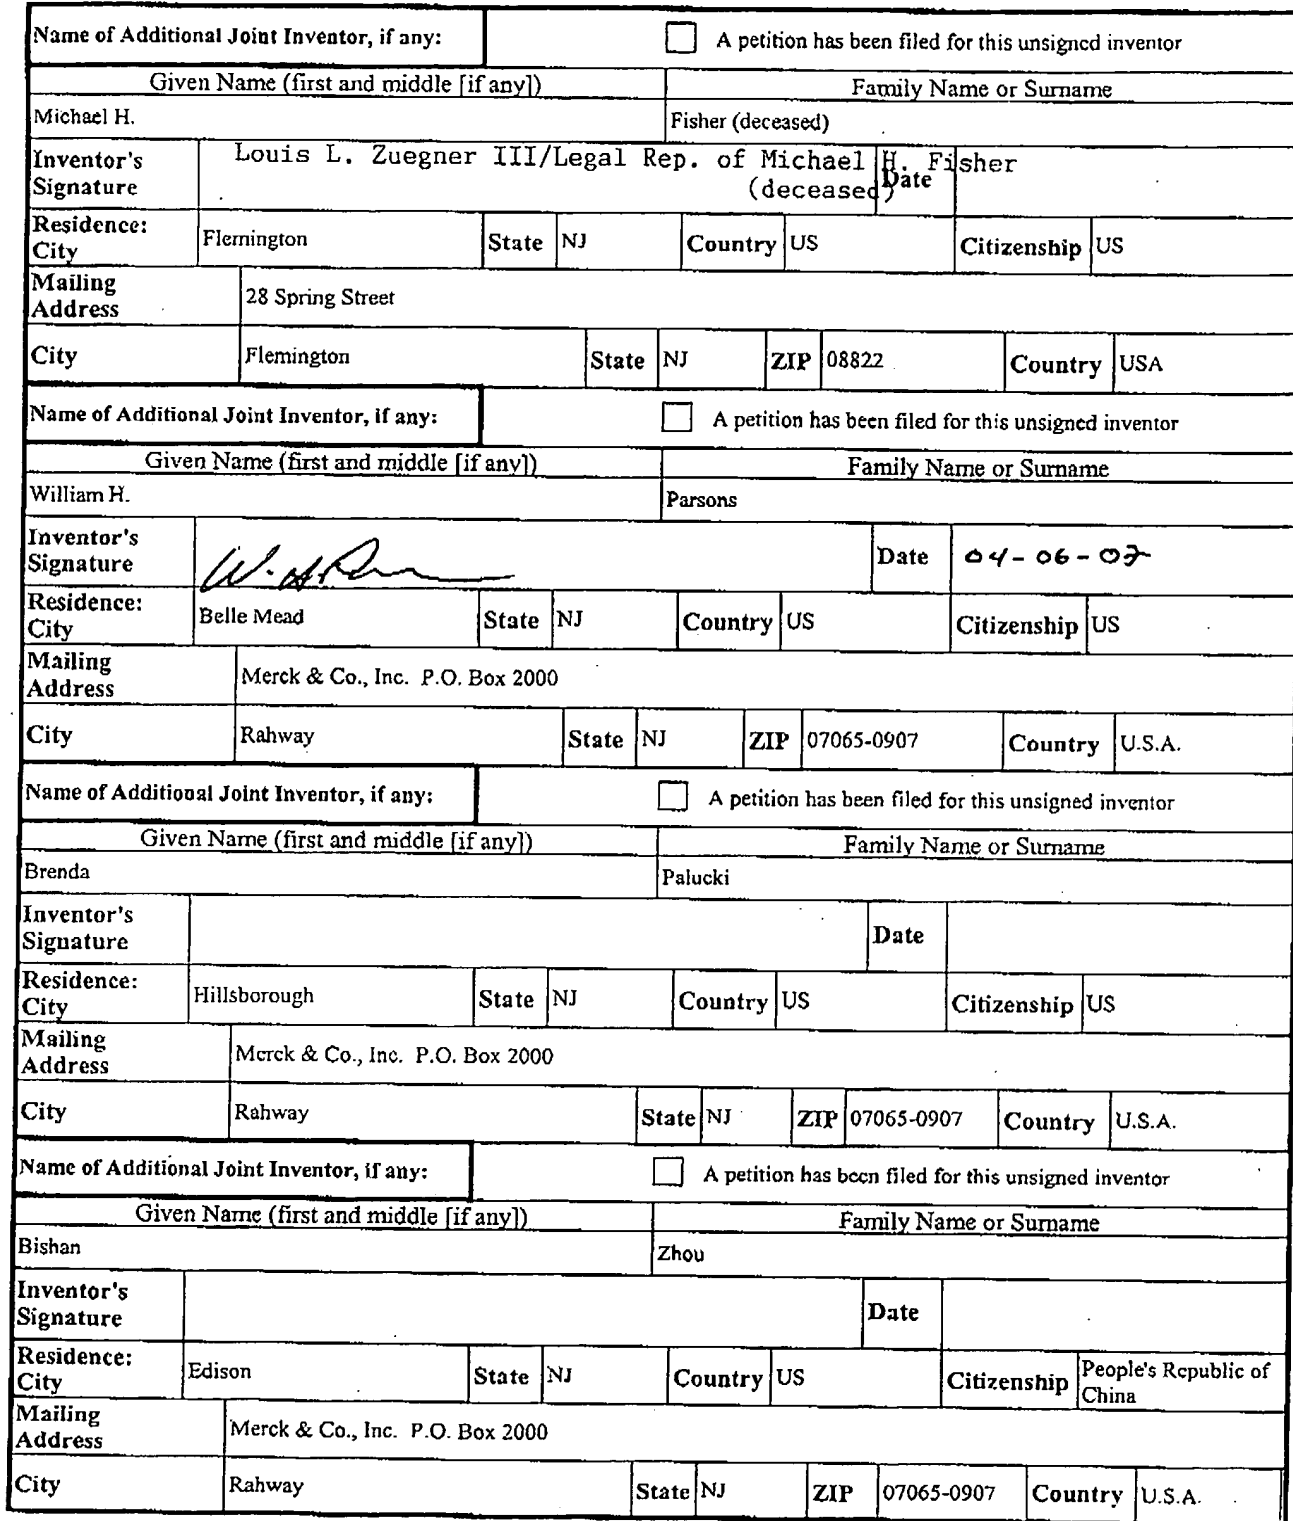 Name of Additional Joint Inventor, if any: A petition has been filed for this unsigned inventor
Given Name (first and middle [if any]) Family Name or Surname
Michael H. Fisher (deceased)
Inventor's Signature Louis L. Zuegner III/Legal Rep. of Michael H. Fisher
(deceased) Date
Residence: City Flemington State NJ Country US Citizenship US
Mailing Address 28 Spring Street
City Flemington State NJ ZIP 08822 Country USA
Name of Additional Joint Inventor, if any: A petition has been filed for this unsigned inventor
Given Name (first and middle [if any]) Family Name or Surname
William H. Parsons
Inventor's Signature Date 04-06-07
Residence: City Belle Mead State NJ Country US Citizenship US
Mailing Address Merck & Co., Inc. P.O. Box 2000
City Rahway State NJ ZIP 07065-0907 Country U.S.A.
Name of Additional Joint Inventor, if any: A petition has been filed for this unsigned inventor
Given Name (first and middle [if any]) Family Name or Surname
Brenda Palucki
Inventor's Signature Date
Residence: City Hillsborough State NJ Country US Citizenship US
Mailing Address Merck & Co., Inc. P.O. Box 2000
City Rahway State NJ ZIP 07065-0907 Country U.S.A.
Name of Additional Joint Inventor, if any: A petition has been filed for this unsigned inventor
Given Name (first and middle [if any]) Family Name or Surname
Bishan Zhou
Inventor's Signature Date
Residence: City Edison State NJ Country US Citizenship People's Republic of China
Mailing Address Merck & Co., Inc. P.O. Box 2000
City Rahway State NJ ZIP 07065-0907 Country U.S.A.